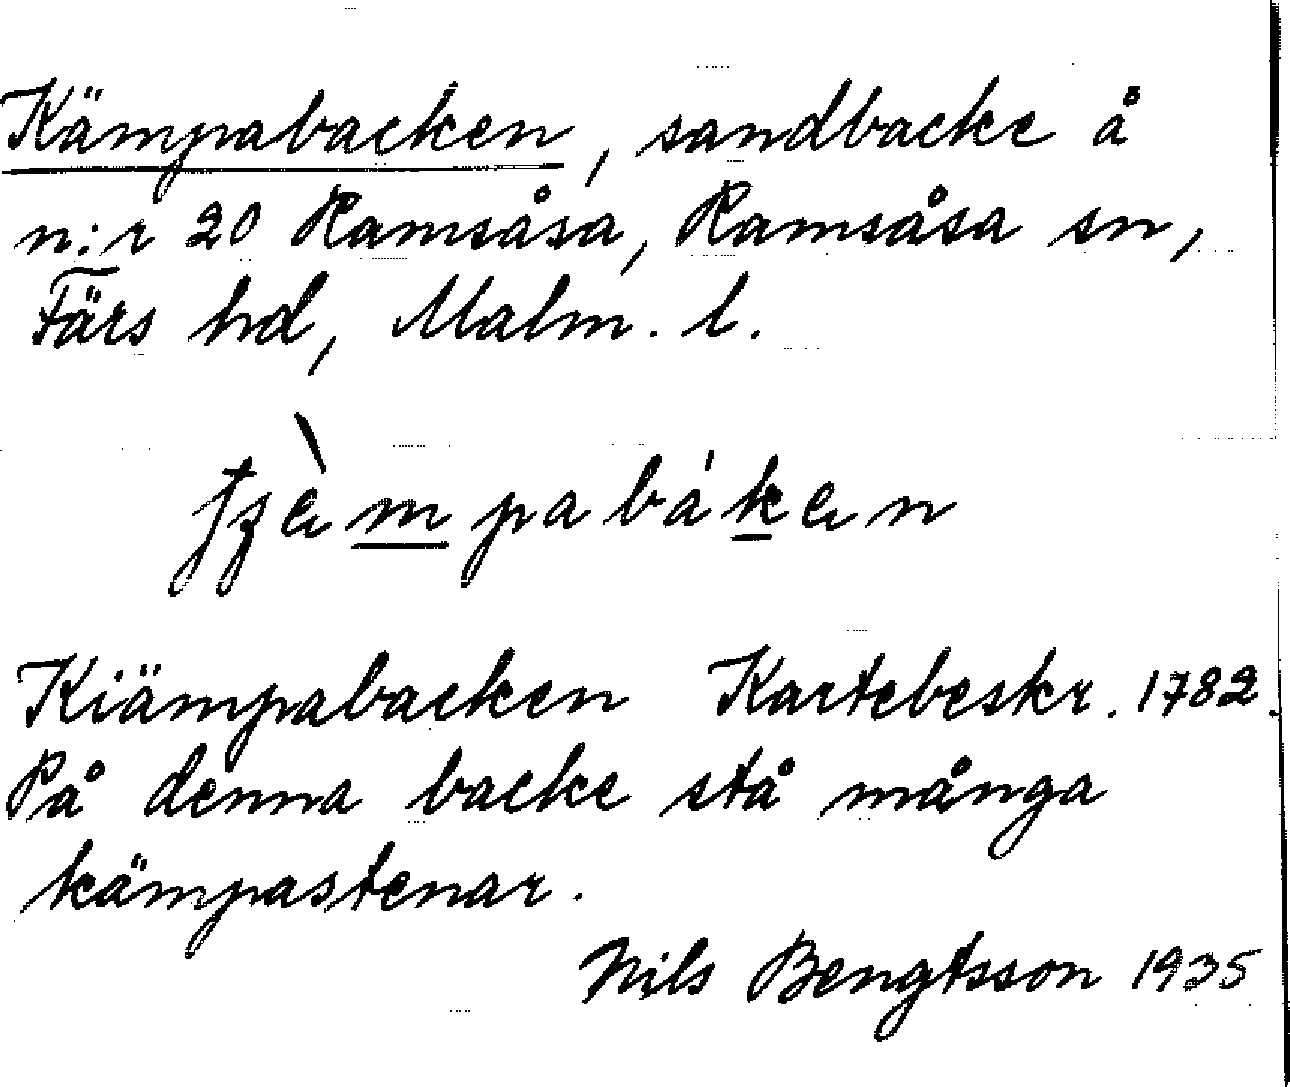 Kämpabacken, sandbacke å
n:r 20 Ramsåsa, Ramsåsa sn,
Färs hd, Malm. l.
Kiämpabacken Kartebeskr. 1782.
På denna backe stå många
kämpastenar.
Nils Bengtsson 1935